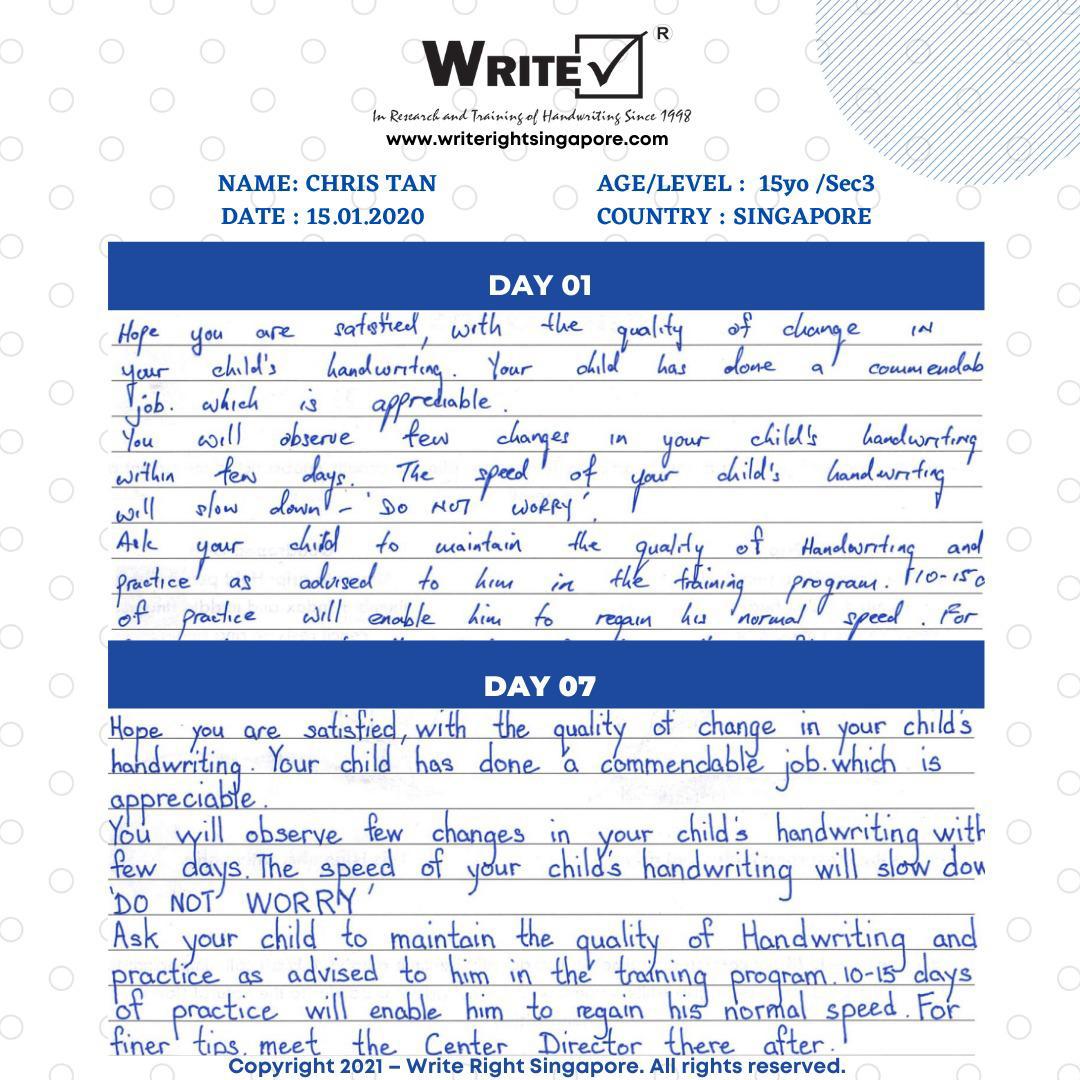 WRITE ®
In Research and Training of Handwriting Since 1998
www.writerightsingapore.com
NAME: CHRIS TAN
AGE/LEVEL : 15yo /Sec3
DATE : 15.01.2020
COUNTRY : SINGAPORE
DAY 01
Hope you are satisfied, with the quality of change in
your child's handwriting. Your child has done a commendab
job. which is appreciable.
You will observe few changes in your child's handwriting
within few days. The speed of your child's handwriting
will slow down - 'DO NOT WORRY'.
Ask your child to maintain the quality of Handwriting and
practice as advised to him in the training program. 10-15 d
of practice will enable him to regain his normal speed. For
DAY 07
Hope you are satisfied, with the quality of change in your child's
handwriting. Your child has done a commendable job. which is
appreciable.
You will observe few changes in your child's handwriting with
few days. The speed of your child's handwriting will slow dow
'DO NOT WORRY'
Ask your child to maintain the quality of Handwriting and
practice as advised to him in the training program. 10-15 days
of practice will enable him to regain his normal speed. For
finer tips, meet the Center Director there after.
Copyright 2021 – Write Right Singapore. All rights reserved.